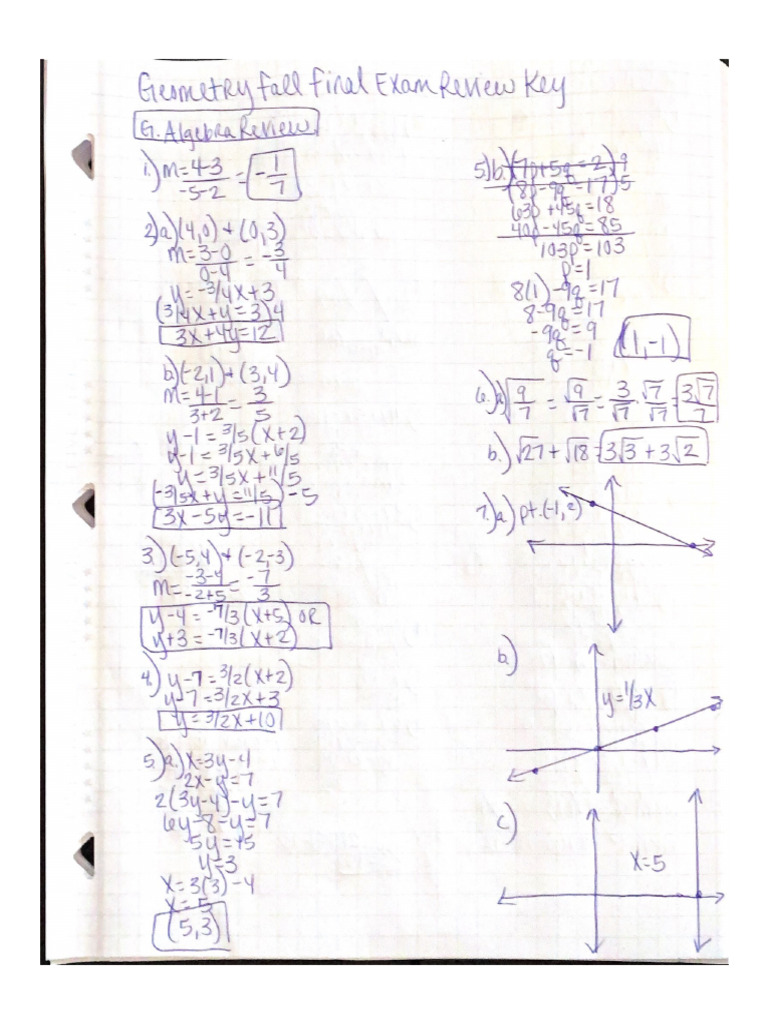 Geometry Fall Final Exam Review Key
G. Algebra Review
1.) m = 4-3/-5-2 = -1/7
2.) a.) (4,0) + (0,3)
m = 3-0/0-4 = -3/4
y = -3/4x + 3
(3/4x + y = 3)4
3x + 4y = 12
b.) (-2,1) + (3,4)
m = 4-1/3+2 = 3/5
y - 1 = 3/5(x+2)
y - 1 = 3/5x + 6/5
y = 3/5x + 11/5
(-3/5x + y = 11/5) -5
3x - 5y = -11
3.) (-5,4) + (-2,-3)
m = -3-4/-2+5 = -7/3
y - 4 = -7/3(x+5) OR
y + 3 = -7/3(x+2)
4.) y - 7 = 3/2(x+2)
y - 7 = 3/2x + 3
y = 3/2x + 10
5.) a.) x = 3y - 4
2x - y = 7
2(3y-4) - y = 7
6y - 8 - y = 7
5y = 15
y = 3
x = 3(3) - 4
x = 5
(5,3)
5.) b.) (7p + 5q = 2)9
(8p - 9q = 17)5
63p + 45q = 18
40p - 45q = 85
103p = 103
p = 1
8(1) - 9q = 17
8 - 9q = 17
-9q = 9
q = -1
(1,-1)
6.) a.) √9/7 = √9/√7 = 3/√7 · √7/√7 = 3√7/7
b.) √27 + √18 = 3√3 + 3√2
7.) a.) pt. (-1,2)
b.)
y = 1/3x
c.)
x = 5